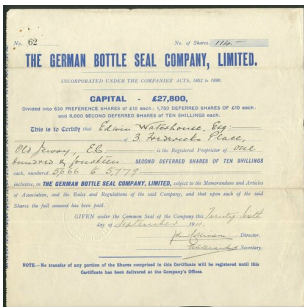 No. 62 No. of Shares 114.
THE GERMAN BOTTLE SEAL COMPANY, LIMITED.
INCORPORATED UNDER THE COMPANIES' ACTS, 1862 to 1890.
CAPITAL - £27,800,
Divided into 630 PREFERENCE SHARES of £10 each; 1,750 DEFERRED SHARES OF £10 each;
and 8,000 SECOND DEFERRED SHARES OF TEN SHILLINGS each.
This is to Certify that Edwin Waterhouse, Esq
of 3, Frederick's Place,
Old Jewry, E.C. is the Registered Proprietor of One
hundred & fourteen SECOND DEFERRED SHARES OF TEN SHILLINGS
each, numbered 5666 to 5779
inclusive, in THE GERMAN BOTTLE SEAL COMPANY, LIMITED, subject to the Memorandum and Articles
of Association, and the Rules and Regulations of the said Company, and that upon each of the said
Shares the full amount has been paid.
GIVEN under the Common Seal of the Company this
day of September
Director.
Secretary.
NOTE.—No transfer of any portion of the Shares comprised in this Certificate will be registered until this
Certificate has been delivered at the Company's Offices.